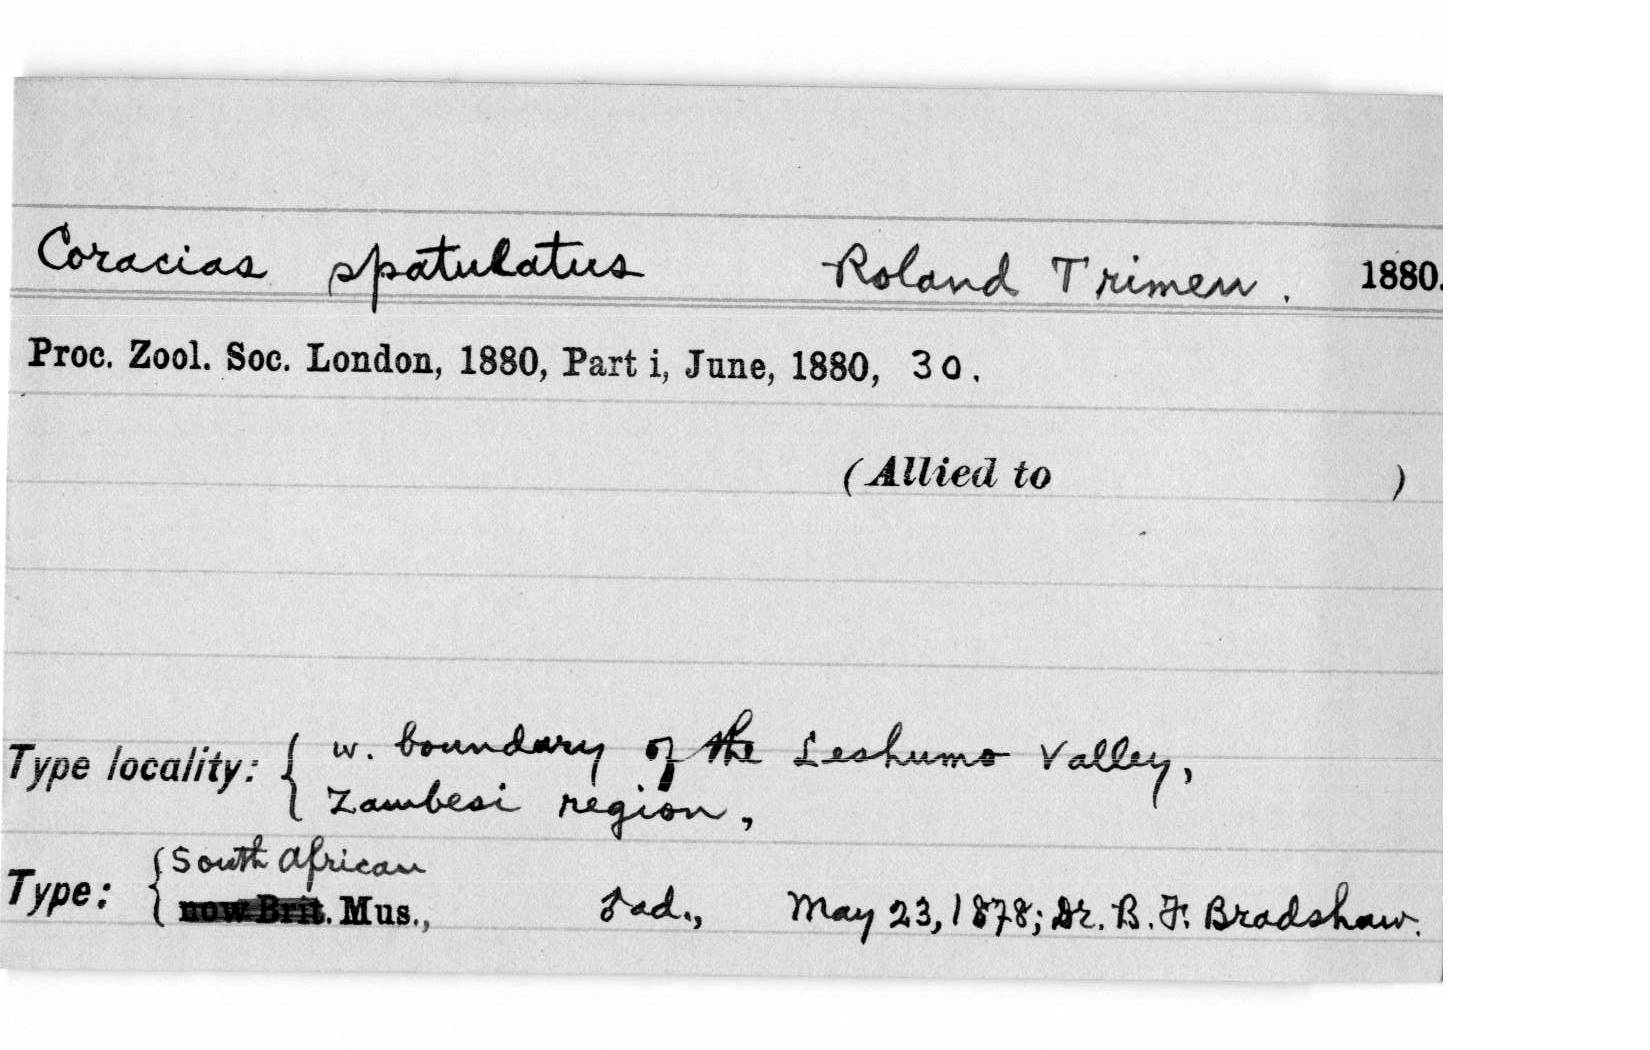 Coracias spatulatus Roland Trimen. 1880.
Proc. Zool. Soc. London, 1880, Part i, June, 1880, 30.
(Allied to )
Type locality: { w. boundary of the Leshumo Valley,
Zambesi region,
Type: { South African
now Brit. Mus., ad., May 23, 1878; Dr. B. F. Bradshaw.